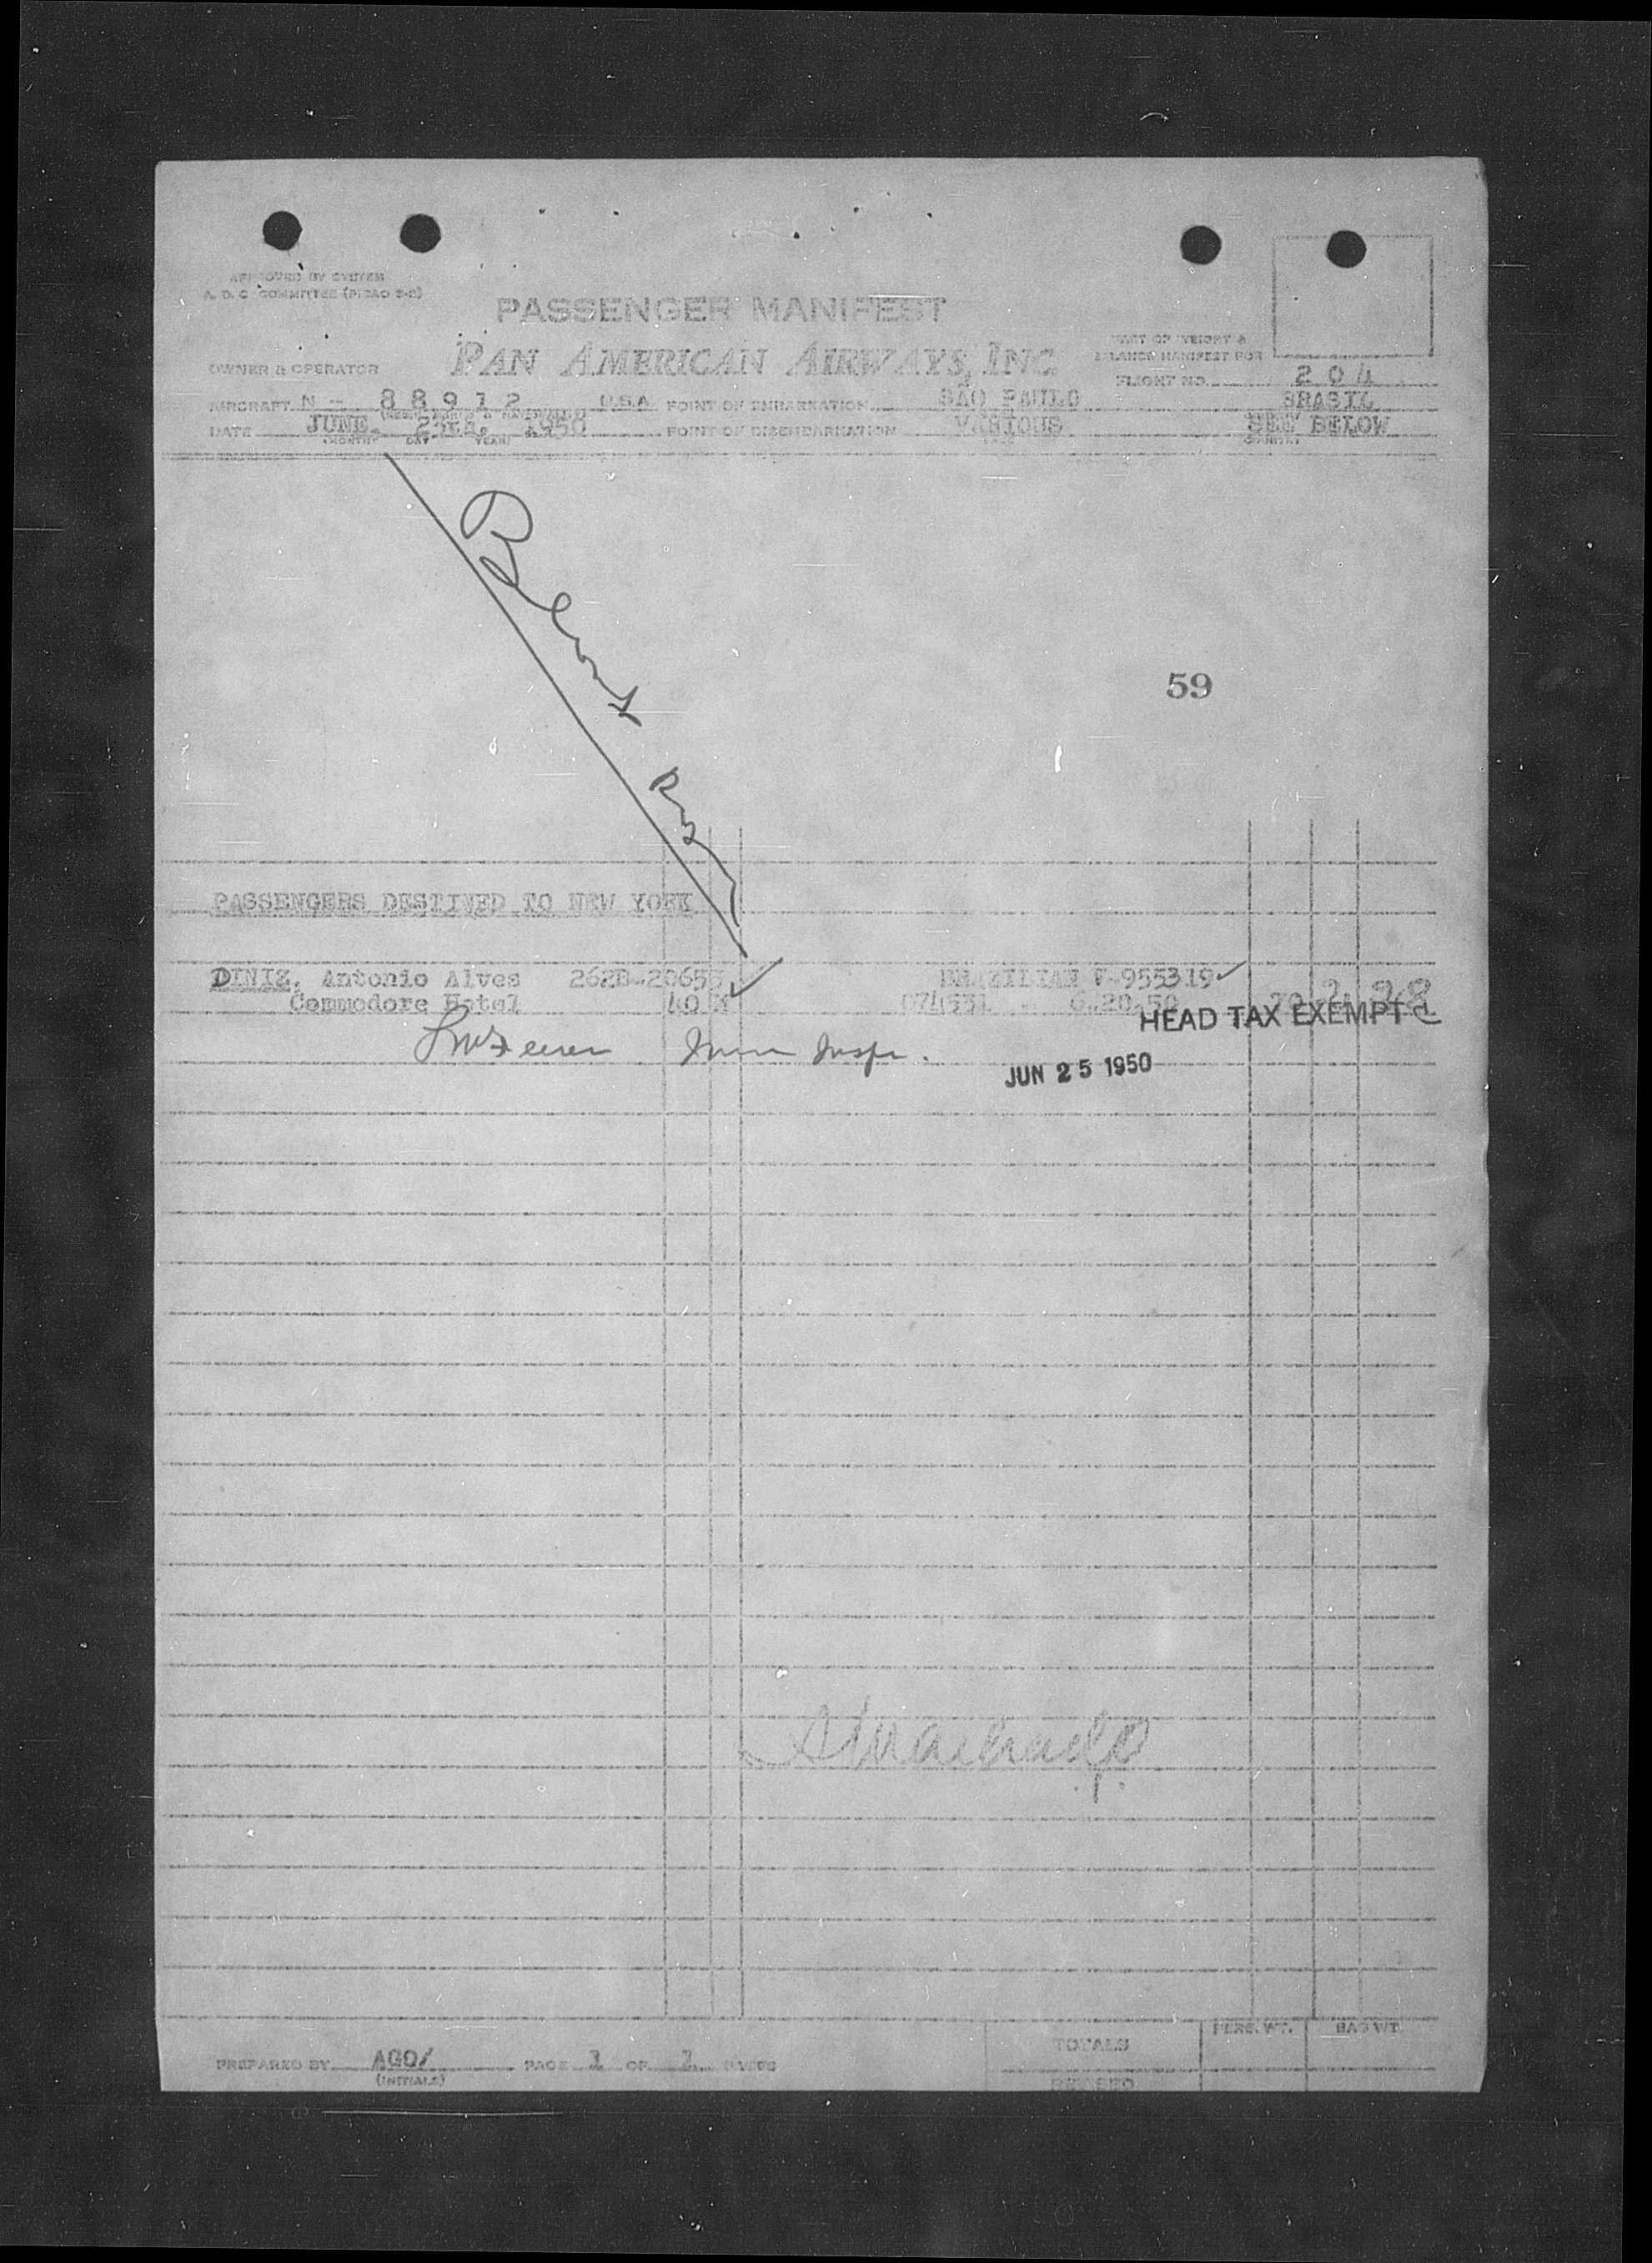 APPROVED BY SYSTEM
A. D. C. COMMITTEE (PICAO 2-2)
PASSENGER MANIFEST
PART OF WEIGHT &
BALANCE MANIFEST FOR
OWNER & OPERATOR PAN AMERICAN AIRWAYS, INC.
FLIGHT NO. 204
AIRCRAFT N - 88912 U.S.A. POINT OF EMBARKATION SAO PAULO BRASIL
DATE JUNE. 1950 POINT OF DISEMBARKATION VARIOUS SEE BELOW
(MONTH) DAY YEAR)
59
PASSENGERS DESTINED TO NEW YORK
DINIZ, Antonio Alves BRAZILIAN V-955319
Commodore Hotel 40 M 074531 6.20.50
HEAD TAX EXEMPT
Imm Inspr.
JUN 25 1950
PERS. WT. BAG WT.
TOTALS
PREPARED BY AGO/ PAGE 1 OF 1 PAGES
(INITIALS)
REVISED